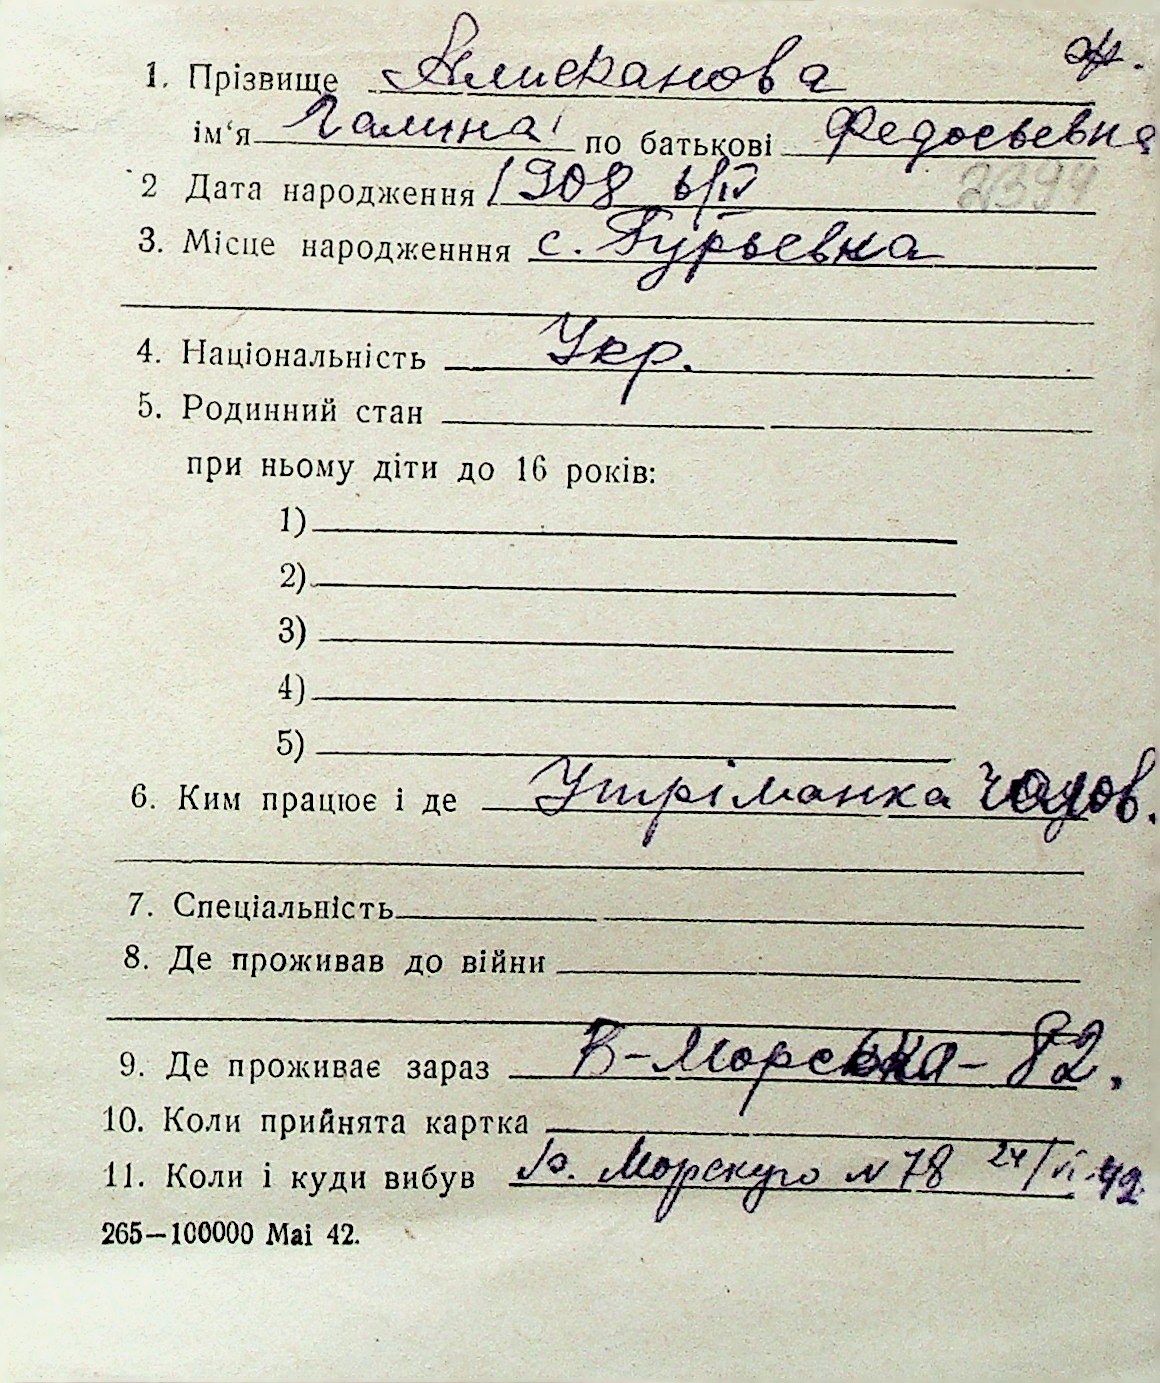 ж.
1. Прізвище Алисканова
ім'я Галина по батькові Федосьевна
2 Дата народження 1908 6/IV 2394
3. Місце народженння с. Гурьевка
4. Національність Укр.
5. Родинний стан
при ньому діти до 16 років:
1)
2)
3)
4)
5)
6. Ким працює і де Утріманка чолов.
7. Спеціальність
8. Де проживав до війни
9. Де проживає зараз В-Морська-82.
10. Коли прийнята картка
11. Коли і куди вибув Морскую N 78 24/VI-42
265—100000 Mai 42.